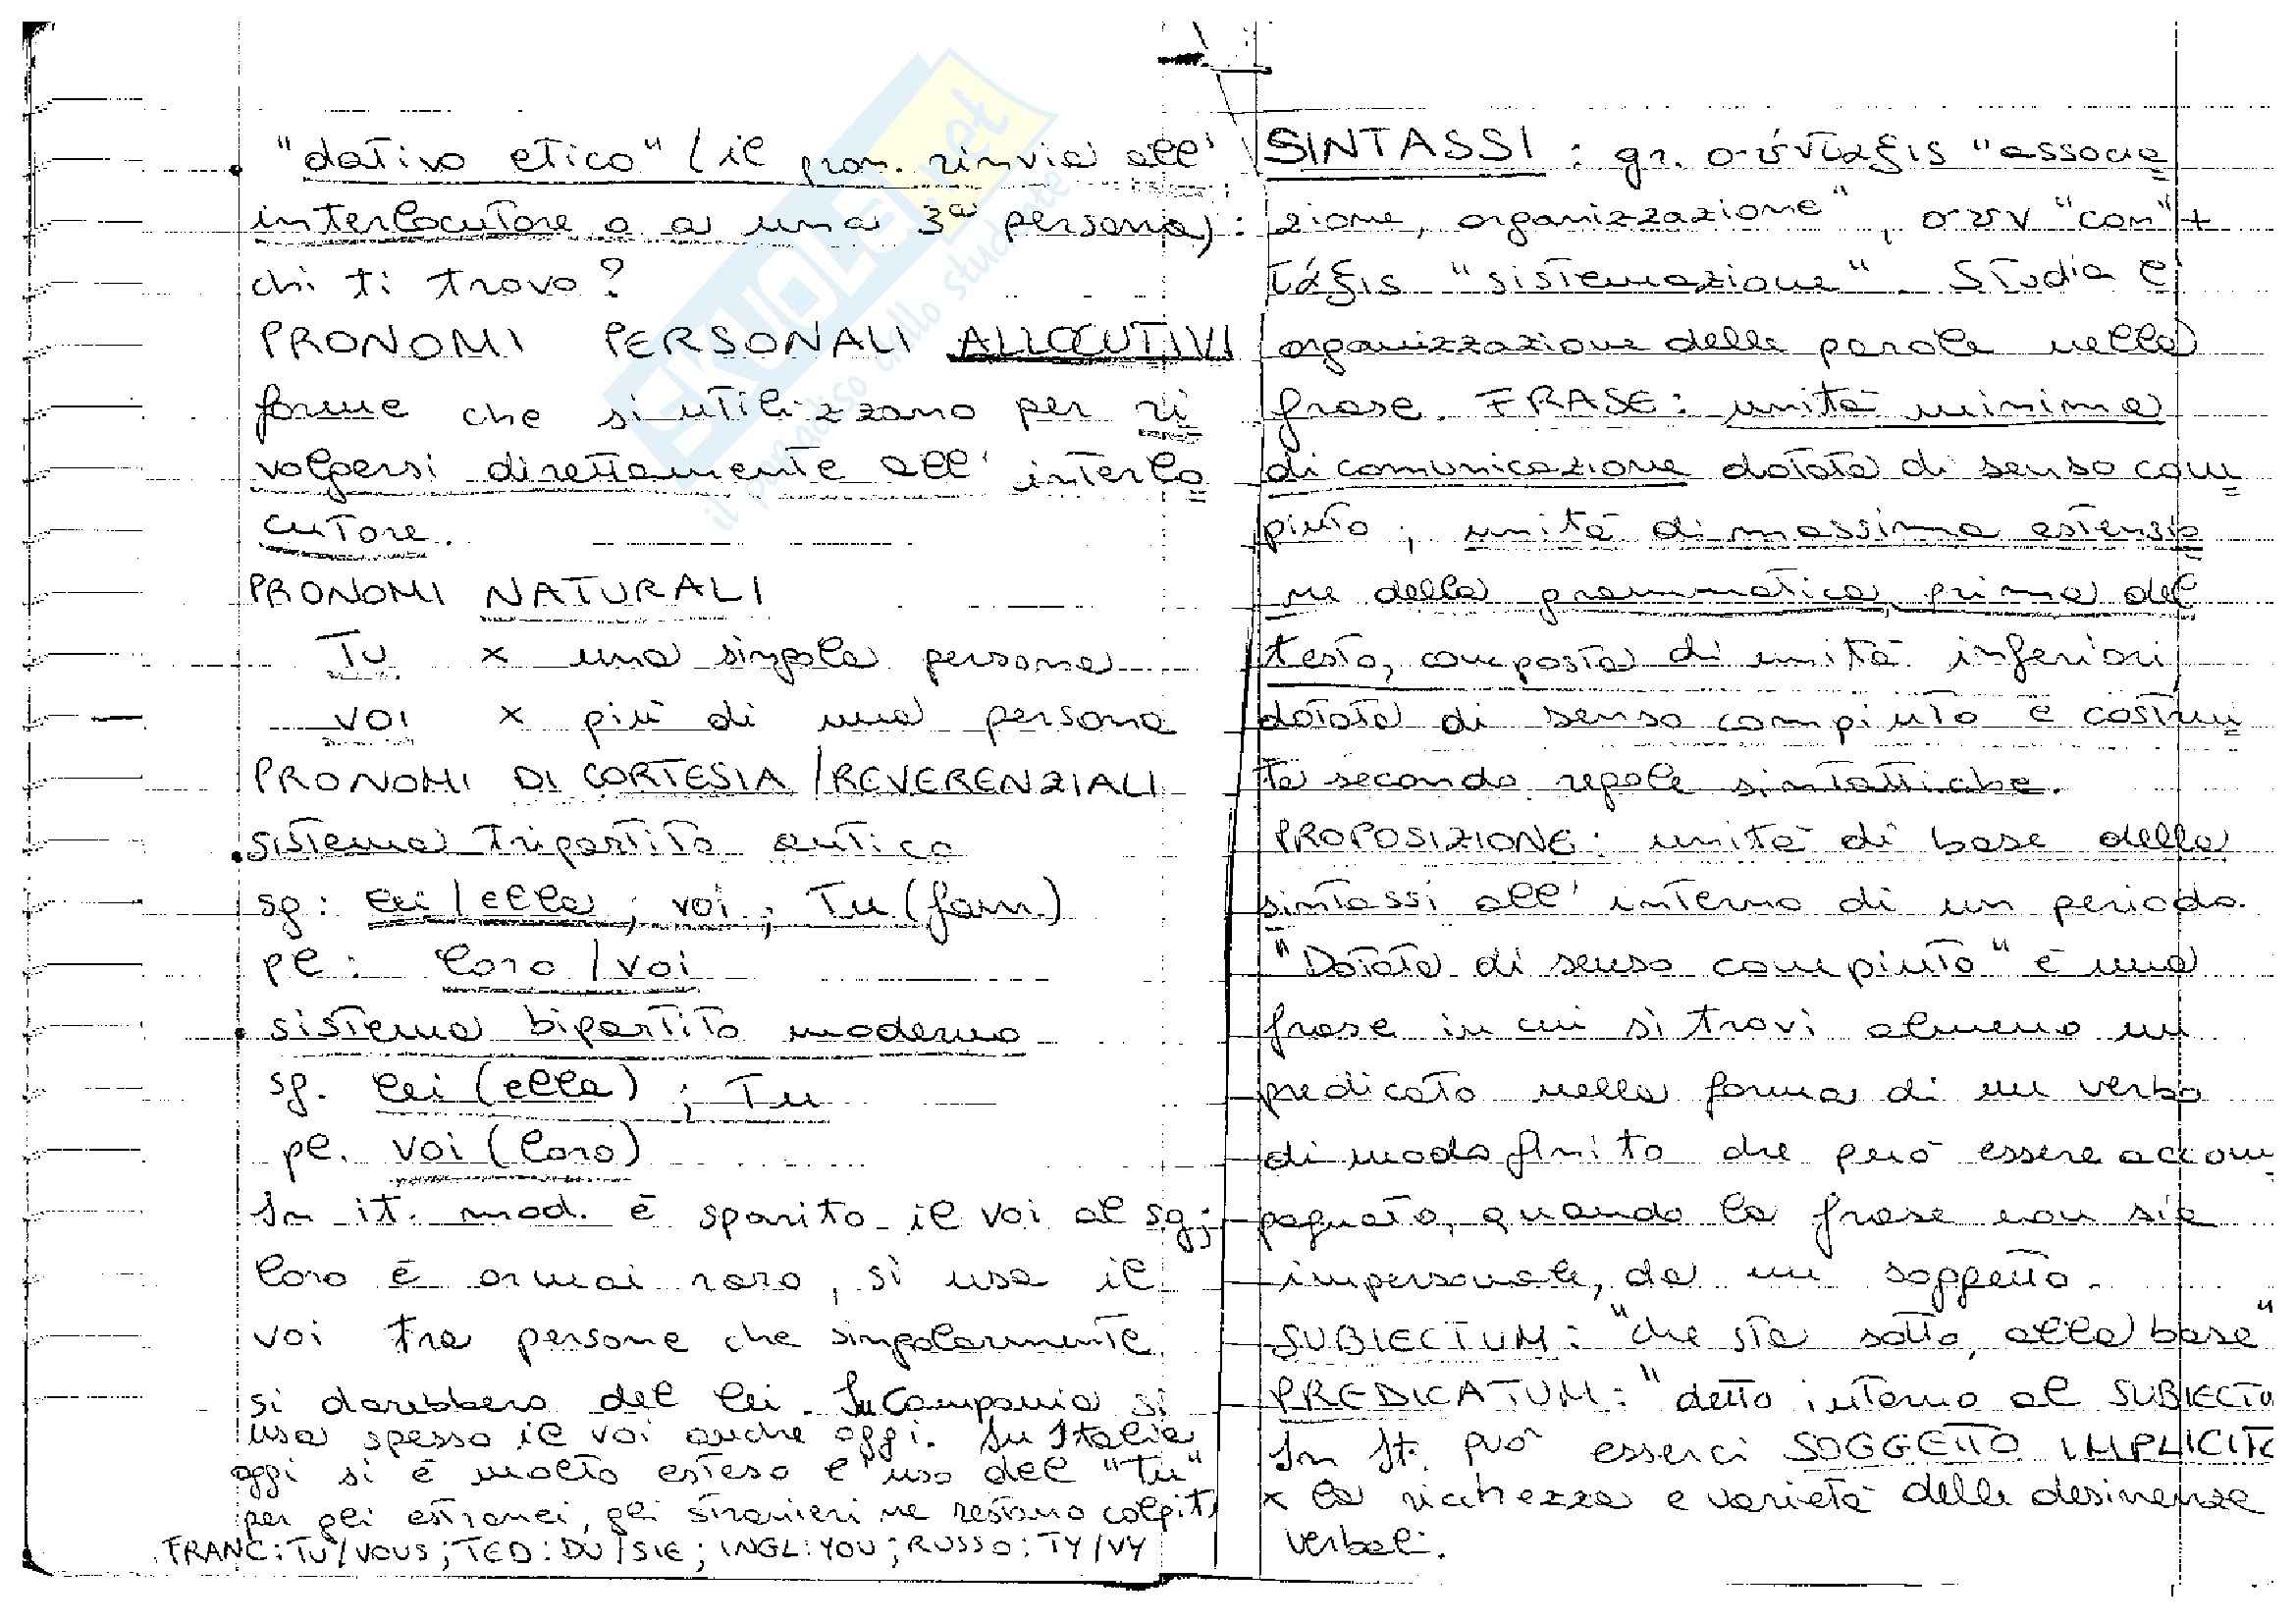 • "dativo etico" (il pron. rinvia all'
interlocutore o a una 3ª persona):
chi ti trovo?
PRONOMI PERSONALI ALLOCUTIVI
forme che si utilizzano per ri
volgersi direttamente all'interlo
cutore.
PRONOMI NATURALI
Tu x una singola persona
voi x più di una persona
PRONOMI DI CORTESIA / REVERENZIALI
• sistema tripartito antico
sg: lei / ella ; voi ; Tu (fam.)
pl: loro / voi
• sistema bipartito moderno
sg. lei (ella) ; Tu
pl. voi (loro)
In it. mod. è sparito il voi al sg;
loro è ormai raro, si usa il
voi tra persone che singolarmente
si darebbero del lei. In Campania si
usa spesso il voi anche oggi. In Italia
oggi si è molto esteso l'uso del "tu"
per gli estranei, gli stranieri ne restano colpiti
FRANC: TU/VOUS; TED: DU/SIE; INGL: YOU; RUSSO: TY/VY
SINTASSI : gr. σύνταξις "associa
zione, organizzazione", συν "con" +
τάξις "sistemazione". Studia l'
organizzazione delle parole nella
frase. FRASE: unità minima
di comunicazione dotata di senso com
piuto ; unità di massima estensio
ne della grammatica, prima del
testo, composta di unità inferiori
dotata di senso compiuto e costrui
ta secondo regole sintattiche.
PROPOSIZIONE: unità di base della
sintassi all'interno di un periodo.
"Dotata di senso compiuto" è una
frase in cui si trovi almeno un
predicato nella forma di un verbo
di modo finito che può essere accom
pagnato, quando la frase non sia
impersonale, da un soggetto.
SUBIECTUM: "che sta sotto, alla base"
PREDICATUM: "detto intorno al SUBIECTU
In It. può esserci SOGGETTO IMPLICITO
x la ricchezza e varietà delle desinenze
verbali.
SKUOLA.net
il paradiso dello studente